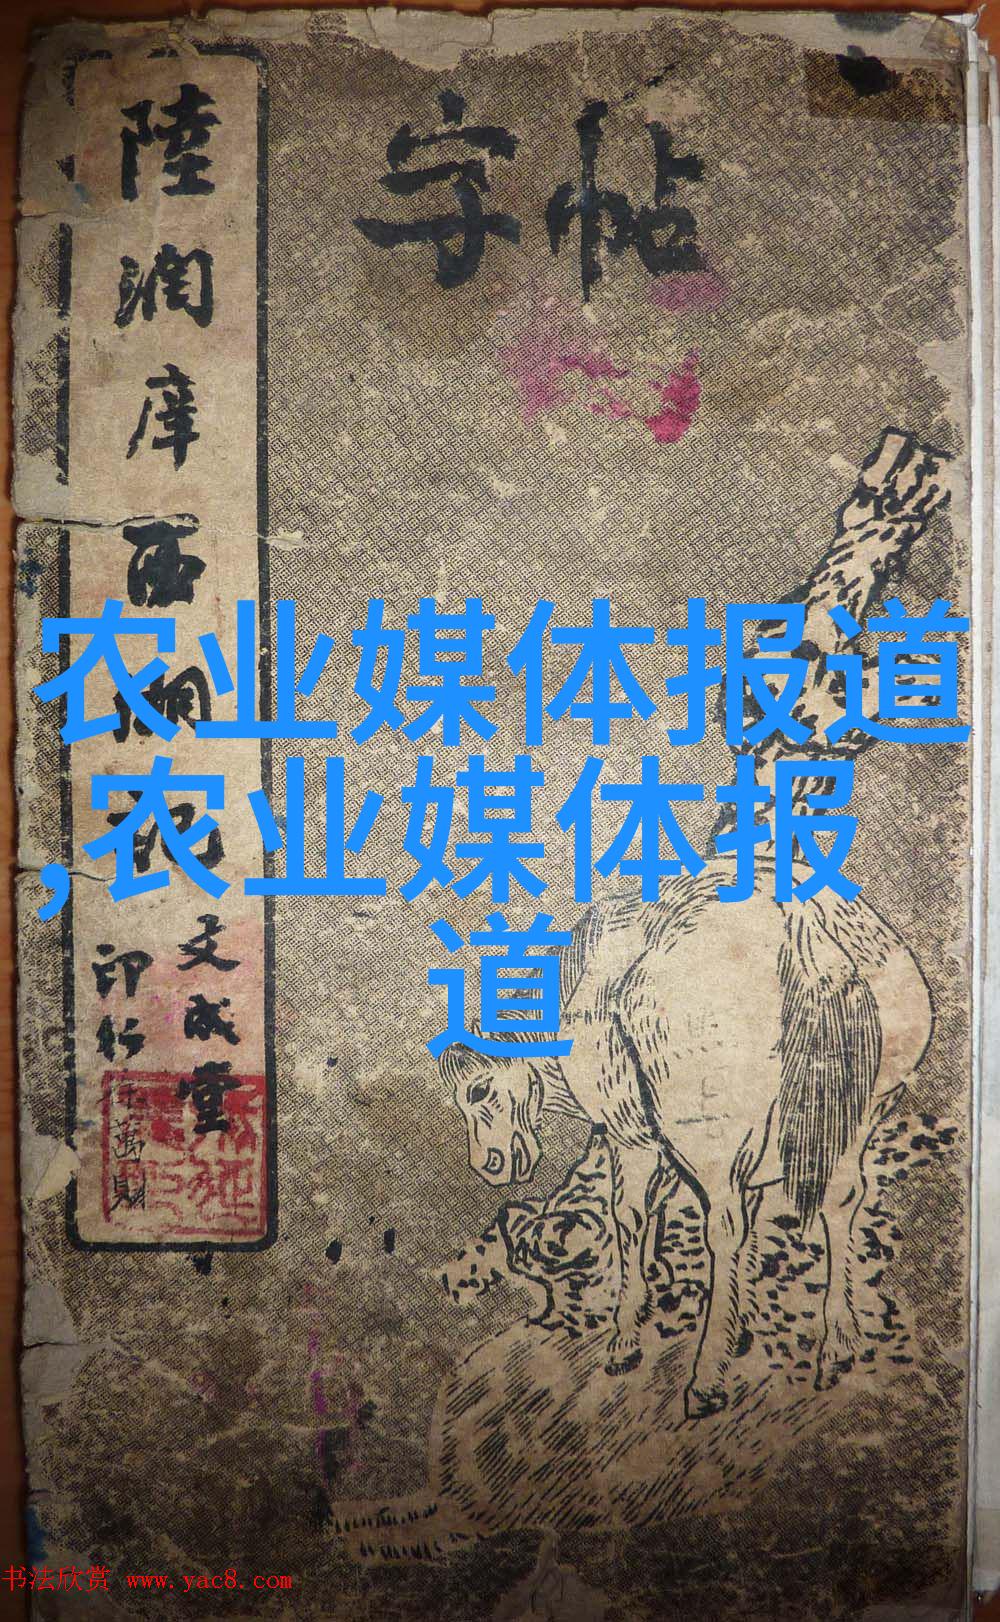 字帖
陸潤庠西湖記
文成堂
印行
徐萬財
农业媒体报道
,农业媒体报
道
书法欣赏 www.yac8.com